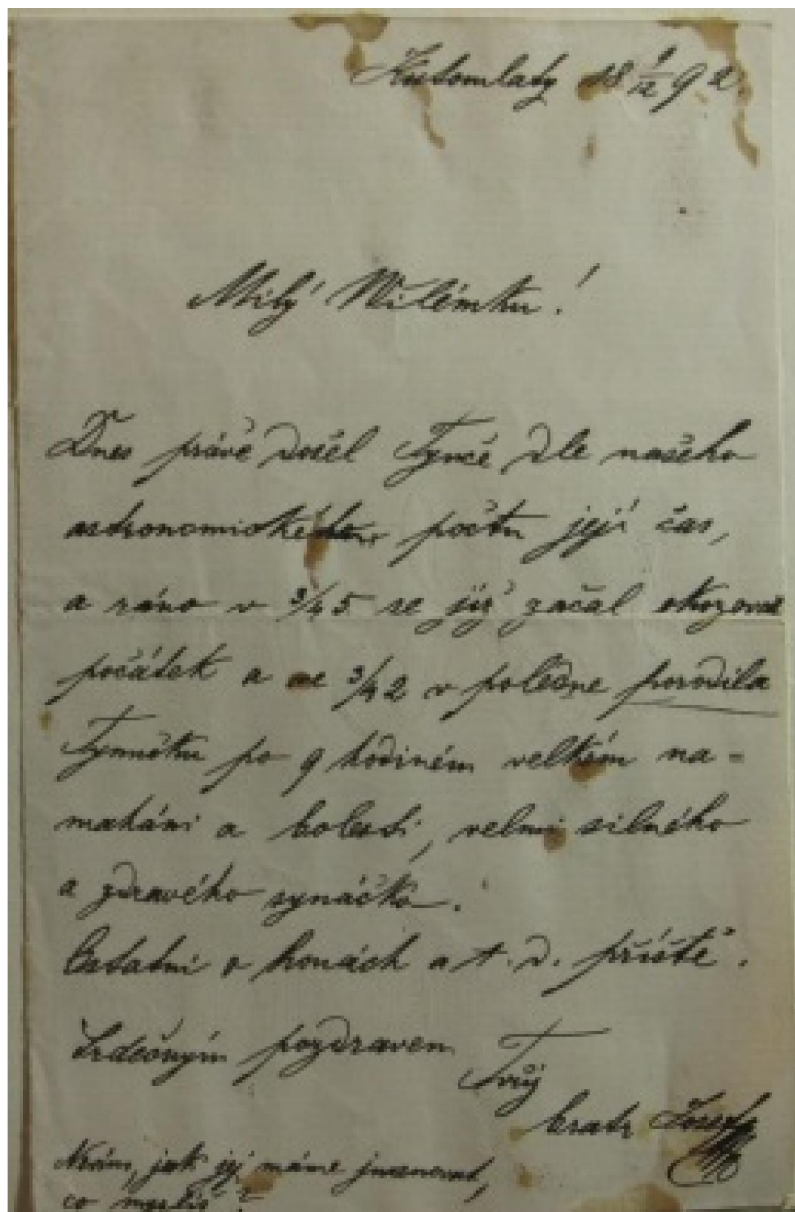 Žiželomlaty 18 1/12 92.
Milý Wilémku!
Dnes právě došel Tynčě dle našeho
astronomického počtu její čas,
a ráno v 3/4 5 se již začal okazovat
počátek a ve 3/4 2 v poledne porodila
Tynnčku po 9 hodiném velkém na=
maháni a bolesti, velmi silného
a zdravého synáčka.
Ostatní o honách a t. d. příště.
Srdečným pozdravem
Tvůj
bratr Josef
Nevím, jak jej máme jmenovat,
co myslíš?